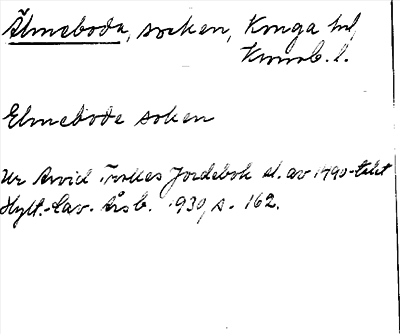 Älmeboda, socken, Konga hd,
Kronob. l.
Elmebode soken
Ur Arvid Trolles Jordebok sl. av 1490-talet
Hylt.-Cav. Årsb. 1939, s. 162.